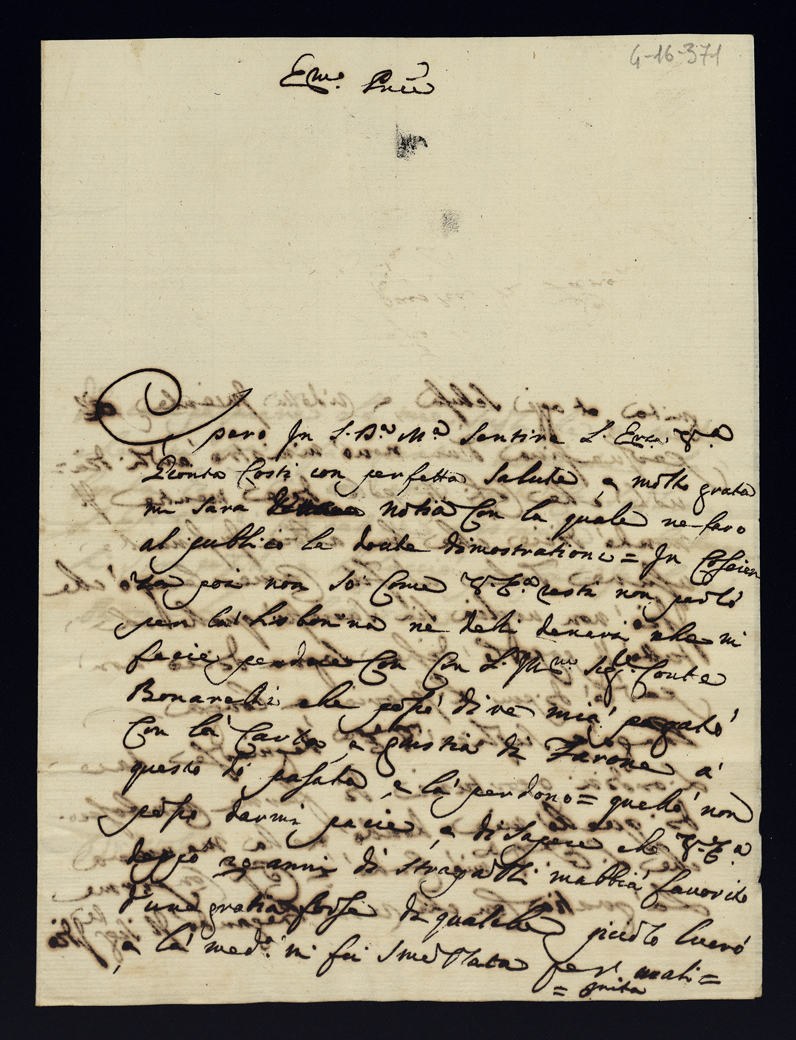 4-16-371
Em.o Pnce
Spero In S. D. M.a Sentire L. Ecc.a V.a
Gionta Costi con perfetta Salute, e molto grata
mi sara notia Con la quale ne faro
al publico le doute dimostrationi = In Coscien
za poi non so Come V. E.a resti non per lo
per la ne delli denari che mi
fecie perdere Con Con L. Ill.mo Sig.r Conte
Bonarelli che posso dire mia pagato
Con la Carta, e giustia di Farone a
questo lo pasata, e la perdono = quelche non
posso darmi pacie, e di Sapere che V. E.a
doppo 20 anni di strapatti mabbia favorito
d'una gratia forse di qualche picolo lucro
e la med.a mi fu Smebrata per mali =
= gnita